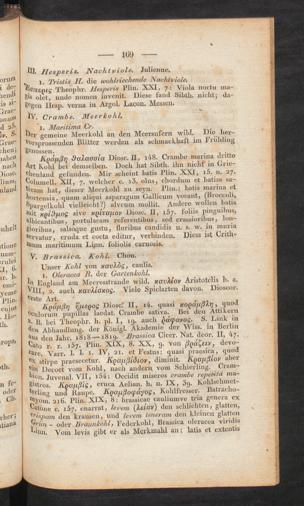 — 169 —
III. Hesperis. Nachtviole. Julienne.
1. Tristis H. die wohlriechende Nachtviole.
Theophr. Hesperis Plin. XXI. 7: Viola noctu ma-
gis olet, unde nomen invenit. Diese fand Sibth. nicht; da-
gegen Hesp. verna in Argol. Lacon. Messen.
IV. Crambe. Meerkohl.
1. Maritima Cr.
Der gemeine Meerkohl an den Meersufern wild. Die her-
vorsprossenden Blätter werden als schmackhaft im Frühling
genossen.
Κράμβη θαλασσία Diosc. II, 148. Crambe marina dritte
Art Kohl bei demselben. Doch hat Sibth. ihn nicht in Grie-
chenland gefunden. Mir scheint hatis Plin. XXI, 15. n. 27.
Columell. XII, 7, welcher c. 13, olus, chordum et batim sa-
tivam hat, dieser Meerkohl zu seyn. Plin.: hatis marina et
hortensis, quam aliqui asparagum Gallicum vocant, (Broccoli,
Spargelkohl vielleicht?) alvum mollit. Andere wollen batis
sive Diosc. II, 157. foliis pinguibus,
albicantibus, portulacam referentibus, sed crassioribus, lon-
gioribus, salsoque gustu, floribus candidis u. s. w. in muria
servatur, cruda et cocta editur, verbinden. Dies ist Crith-
mum maritimum Linn. foliolis carnosis.
V. Brassica. Kohl. Chou.
Unser Kohl von καυλός, caulis.
1. Oleracea B. der Gartenkohl.
In England am Meersstrande wild. Aristotelis h. a.
VIII, 2. auch Viele Spielarten davon. Dioscor.
erste Art.
Κράμβη ἥμερος Diosc. II, 14. quasi quod
oculorum pupillas laedat. Crambe sativa. Bei den Attikern
z. B. bei Theophr. h. pl. I, 19. auch S. Link in
den Abhandlung. der Königl. Akademie der Wiss. in Berlin
aus den Jahr. 1818—1819. Brassica Cicer. Nat. deor. II, 47.
Cato r. r. 157. Plin. XIX, 8. XX, 9. von devo-
rare, Varr. l. l. 1. IV, 21. et Festus: quasi praesica, quod
e. stirpe praesecetur. diminit. aber
ein Decoct vom Kohl, nach andern vom Schierling. Cram-
ben, Juvenal. VII, 154: Occidit miseros crambe repetita ma-
gistros. eruca Aelian. h. n. IX, 39. Kohlschmet-
terling und Raupe. Kohlfresser. Batracho-
myom. 216. Plin. XIX, 8: brassicae cauliumve tria genera ex
Catone c. 157. enarrat, levem (λεῖαν) den schlichten, glatten,
crispam den krausen, und levem teneram den kleinen glatten
Grün- oder Braunkohl, Federkohl, Brassica oleracea viridis
Linn. Vom levis gibt er als Merkmahl an: latis et extentis